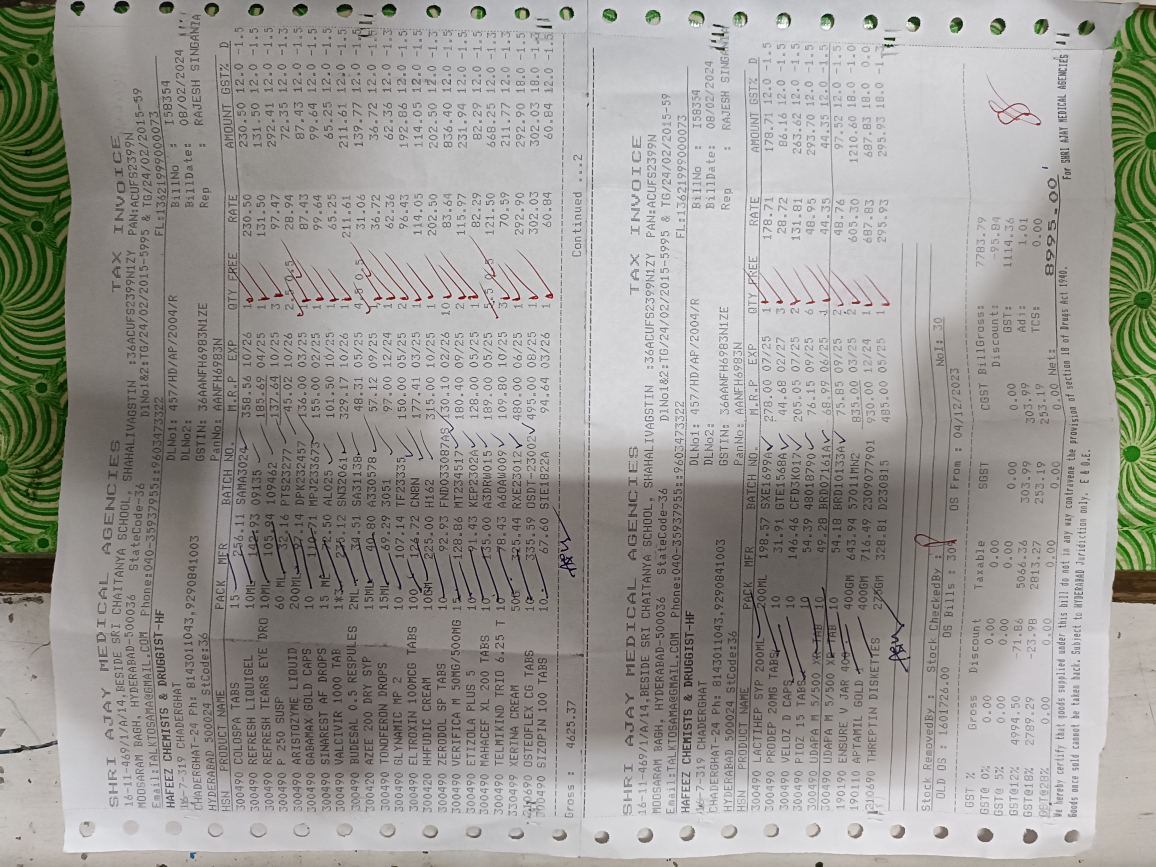 SHRI AJAY MEDICAL AGENCIES TAX INVOICE
16-11-469/1/A/14,BESIDE SRI CHAITANYA SCHOOL, SHAHALIVAGSTIN :36ACUFS2399N1ZY PAN:ACUFS2399N
MOOSARAM BAGH, HYDERABAD-500036 StateCode-36 DlNo1&2:TG/24/02/2015-5995 & TG/24/02/2015-59
Email:TALKTOSAMA@GMAIL.COM Phone:040-35937955::9603473322 FL:13621999000073
HAFEEZ CHEMISTS & DRUGGIST-HF DLNo1: 457/HD/AP/2004/R BillNo : I58354
16-7-319 CHADERGHAT DLNo2: BillDate: 08/02/2024
CHADERGHAT-24 Ph: 8143011043,9290841003 GSTIN: 36AANFH6983N1ZE Rep : RAJESH SINGANIA
HYDERABAD 500024 StCode:36 PanNo: AANFH6983N
HSN PRODUCT NAME PACK MFR BATCH NO. M.R.P EXP QTY FREE RATE AMOUNT GST% D
300490 COLOSPA TABS 15 256.11 SAMA3024 358.56 10/26 1 230.50 230.50 12.0 -1.5
300490 REFRESH LIQUIGEL 10ML 09135 185.69 04/25 1 131.50 131.50 12.0 -1.5
300490 REFRESH TEARS EYE DRO 10ML 105.94 109462 137.64 10/25 3 97.47 292.41 12.0 -1.5
300490 P 250 SUSP 60 ML 32.16 PTS23277 45.02 10/26 2.5 0.5 28.94 72.35 12.0 -1.3
300490 ARISTOZYME LIQUID 200ML 97.14 DPK232457 136.00 10/25 1 87.43 87.43 12.0 -1.5
300490 GABAMAX GOLD CAPS 10 110.71 MPV233673 155.00 02/25 1 97.64 99.64 12.0 -1.5
300490 SINAREST AF DROPS 15 ML 72.50 ALO25 101.50 10/25 1 65.25 65.25 12.0 -1.5
300490 VALCIVIR 1000 TAB 1*3 235.12 SN32061 329.17 10/26 1 211.61 211.61 12.0 -1.5
300490 BUDESAL 0.5 RESPULES 2ML 34.51 SA31138 48.31 05/25 4.5 0.5 31.06 139.77 12.0 -1.5
300420 AZEE 200 DRY SYP 15ML 40.80 A330578 57.12 09/25 1 36.72 36.72 12.0 -1.5
300490 TONOFERON DROPS 15ML 69.29 3051 97.00 12/24 1 62.36 62.36 12.0 -1.5
300490 GLYNAMIC MP 2 10 107.14 TF23335 150.00 05/25 2 96.43 192.86 12.0 -1.5
300490 ELTROXIN 100MCG TABS 100 126.72 CN6BN 177.41 03/25 1 114.05 114.05 12.0 -1.5
300420 HHFUDIC CREAM 10GM 225.00 H162 315.00 10/25 1 202.50 202.50 12.0 -1.3
300490 ZERODOL SP TABS 10 92.93 FND03307AS 130.10 02/26 10 83.64 836.40 12.0 -1.5
300490 VERIFICA M 50MG/500MG 15 128.86 MT234517 180.40 09/25 2 115.97 231.94 12.0 -1.5
300490 ETIZOLA PLUS 5 10 91.43 KEP2302A 128.00 05/25 1 82.29 82.29 12.0 -1.5
300490 MAHACEF XL 200 TABS 10 135.00 A3DRW015 189.00 05/25 5.5 0.5 121.50 668.25 12.0 -1.5
300490 TELMIKIND TRIO 6.25 T 10 78.43 AOADW009 109.80 10/25 3 70.59 211.77 12.0 -1.5
330499 XERINA CREAM 50G 325.44 RXE23012 480.00 06/25 1 292.90 292.90 18.0 -1.5
210690 OSTEOFLEX CG TABS 10 335.59 OSDT-23002 495.00 08/25 1 302.03 302.03 18.0 -1.5
300490 SIZOPIN 100 TABS 10 67.60 STE1822A 94.64 03/26 1 60.84 60.84 12.0 -1.5
Gross : 4625.37 Continued ...2
SHRI AJAY MEDICAL AGENCIES TAX INVOICE
16-11-469/1/A/14,BESIDE SRI CHAITANYA SCHOOL, SHAHALIVAGSTIN :36ACUFS2399N1ZY PAN:ACUFS2399N
MOOSARAM BAGH, HYDERABAD-500036 StateCode-36 DlNo1&2:TG/24/02/2015-5995 & TG/24/02/2015-59
Email:TALKTOSAMA@GMAIL.COM Phone:040-35937955::9603473322 FL:13621999000073
HAFEEZ CHEMISTS & DRUGGIST-HF DLNo1: 457/HD/AP/2004/R BillNo : I58354
16-7-319 CHADERGHAT DLNo2: BillDate: 08/02/2024
CHADERGHAT-24 Ph: 8143011043,9290841003 GSTIN: 36AANFH6983N1ZE Rep : RAJESH SINGANIA
HYDERABAD 500024 StCode:36 PanNo: AANFH6983N
HSN PRODUCT NAME PACK MFR BATCH NO. M.R.P EXP QTY FREE RATE AMOUNT GST% D
300490 LACTIHEP SYP 200ML 200ML 198.57 SXE1699A 278.00 07/25 1 178.71 178.71 12.0 -1.5
300490 PRODEP 20MG TABS 10 31.91 GTE1568A 44.68 02/27 3 28.72 86.16 12.0 -1.5
300490 VELOZ D CAPS 10 146.46 CFD3K017 205.05 07/25 2 131.81 263.62 12.0 -1.5
300490 PIOZ 15 TABS 10 54.39 4B018790 76.15 09/25 6 48.95 293.70 12.0 -1.5
300490 UDAPA M 5/500 XR TAB 10 49.28 BRD07161A 68.99 06/25 1 44.35 44.35 12.0 -1.5
300490 UDAPA M 5/500 XR TAB 10 54.18 BRD10133A 75.85 09/25 2 48.76 97.52 12.0 -1.5
190190 ENSURE V VAR 400 400GM 643.94 57011MN2 835.00 03/25 2 605.30 1210.60 18.0 -1.0
190110 APTAMIL GOLD 1 400GM 716.49 2309077901 930.00 12/24 1 687.83 687.83 18.0 0.0
210690 THREPTIN DISKETTES 275GM 328.81 D230815 485.00 05/25 1 295.93 295.93 18.0 -1.5
Stock RemovedBy : Stock CheckedBy :
OLD OS : 1601726.00 OS Bills : 309 OS From : 04/12/2023 NoI: 30
GST % Gross Discount Taxable SGST CGST BillGross: 7783.79
GST@ 0% 0.00 0.00 0.00 Discount: -95.84
GST@ 5% 0.00 0.00 0.00 0.00 0.00 GST: 1114.36
GST@12% 4994.50 -71.86 5066.36 303.99 303.99 Adj: 1.01
GST@18% 2789.29 -23.98 2813.27 253.19 253.19 TCS: 0.00
GST@28% 0.00 0.00 0.00 0.00 0.00 Net: 8995.00
We hereby certify that goods supplied under this bill do not in any way contravene the provision of section 18 of Drugs Act 1940. For SHRI AJAY MEDICAL AGENCIES
Goods once sold cannot be taken back. Subject to HYDERABAD Juridiction only. E & O.E.